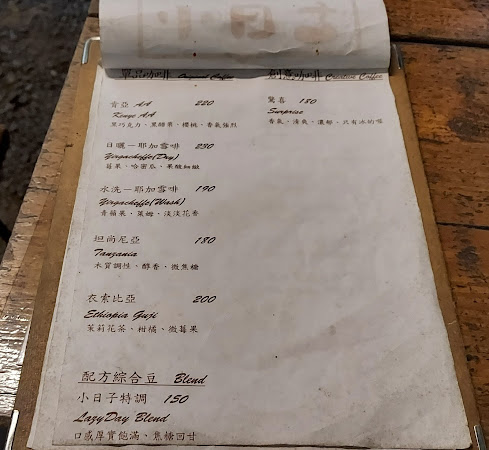 小日子
單品咖啡 Original Coffee
肯亞 AA 220
Kenya AA
黑巧克力、黑醋栗、櫻桃、香氣強烈
日曬－耶加雪啡 230
Yirgacheffe(Dry)
莓果、哈密瓜、果酸細緻
水洗－耶加雪啡 190
Yirgacheffe(Wash)
青蘋果、萊姆、淡淡花香
坦尚尼亞 180
Tanzania
木質調性、醇香、微焦糖
衣索比亞 200
Ethiopia Guji
茉莉花茶、柑橘、微莓果
配方綜合豆 Blend
小日子特調 150
LazyDay Blend
口感厚實飽滿、焦糖回甘
創意咖啡 Creative Coffee
驚喜 180
Surprise
香氣、清爽、濃郁、只有冰的喔